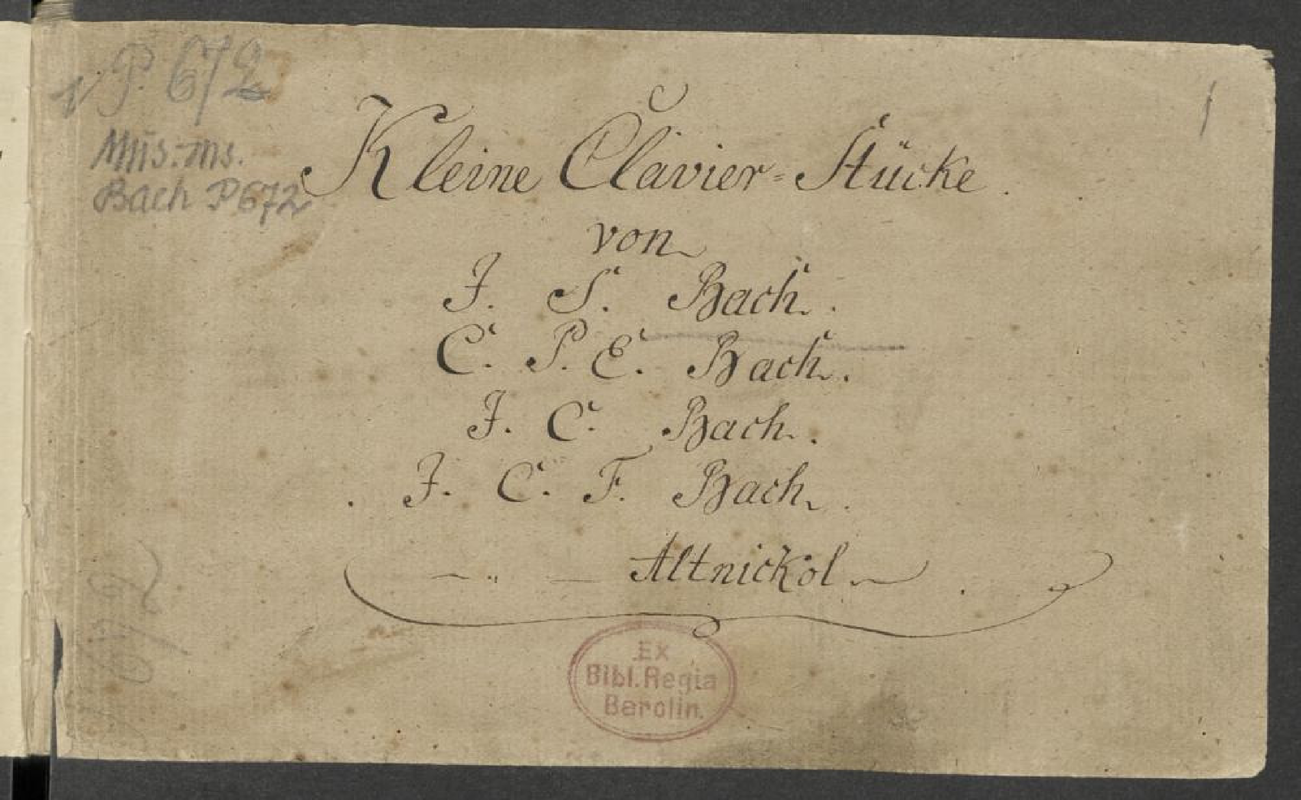 P 672
Mus. ms.
Bach P 672
Kleine Clavier=Stücke.
von
J. S. Bach.
C. P. E. Bach.
J. C. Bach.
J. C. F. Bach.
Altnickol
Ex
Bibl. Regia
Berolin.